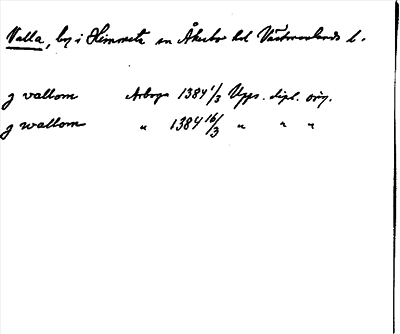 Valla, by i Himmeta sn Åkerbo hd Västmanlands l.
j vallom Arboga 1384 1/3 Upps. dipl. orig.
j wallom " 1384 16/3 " " "